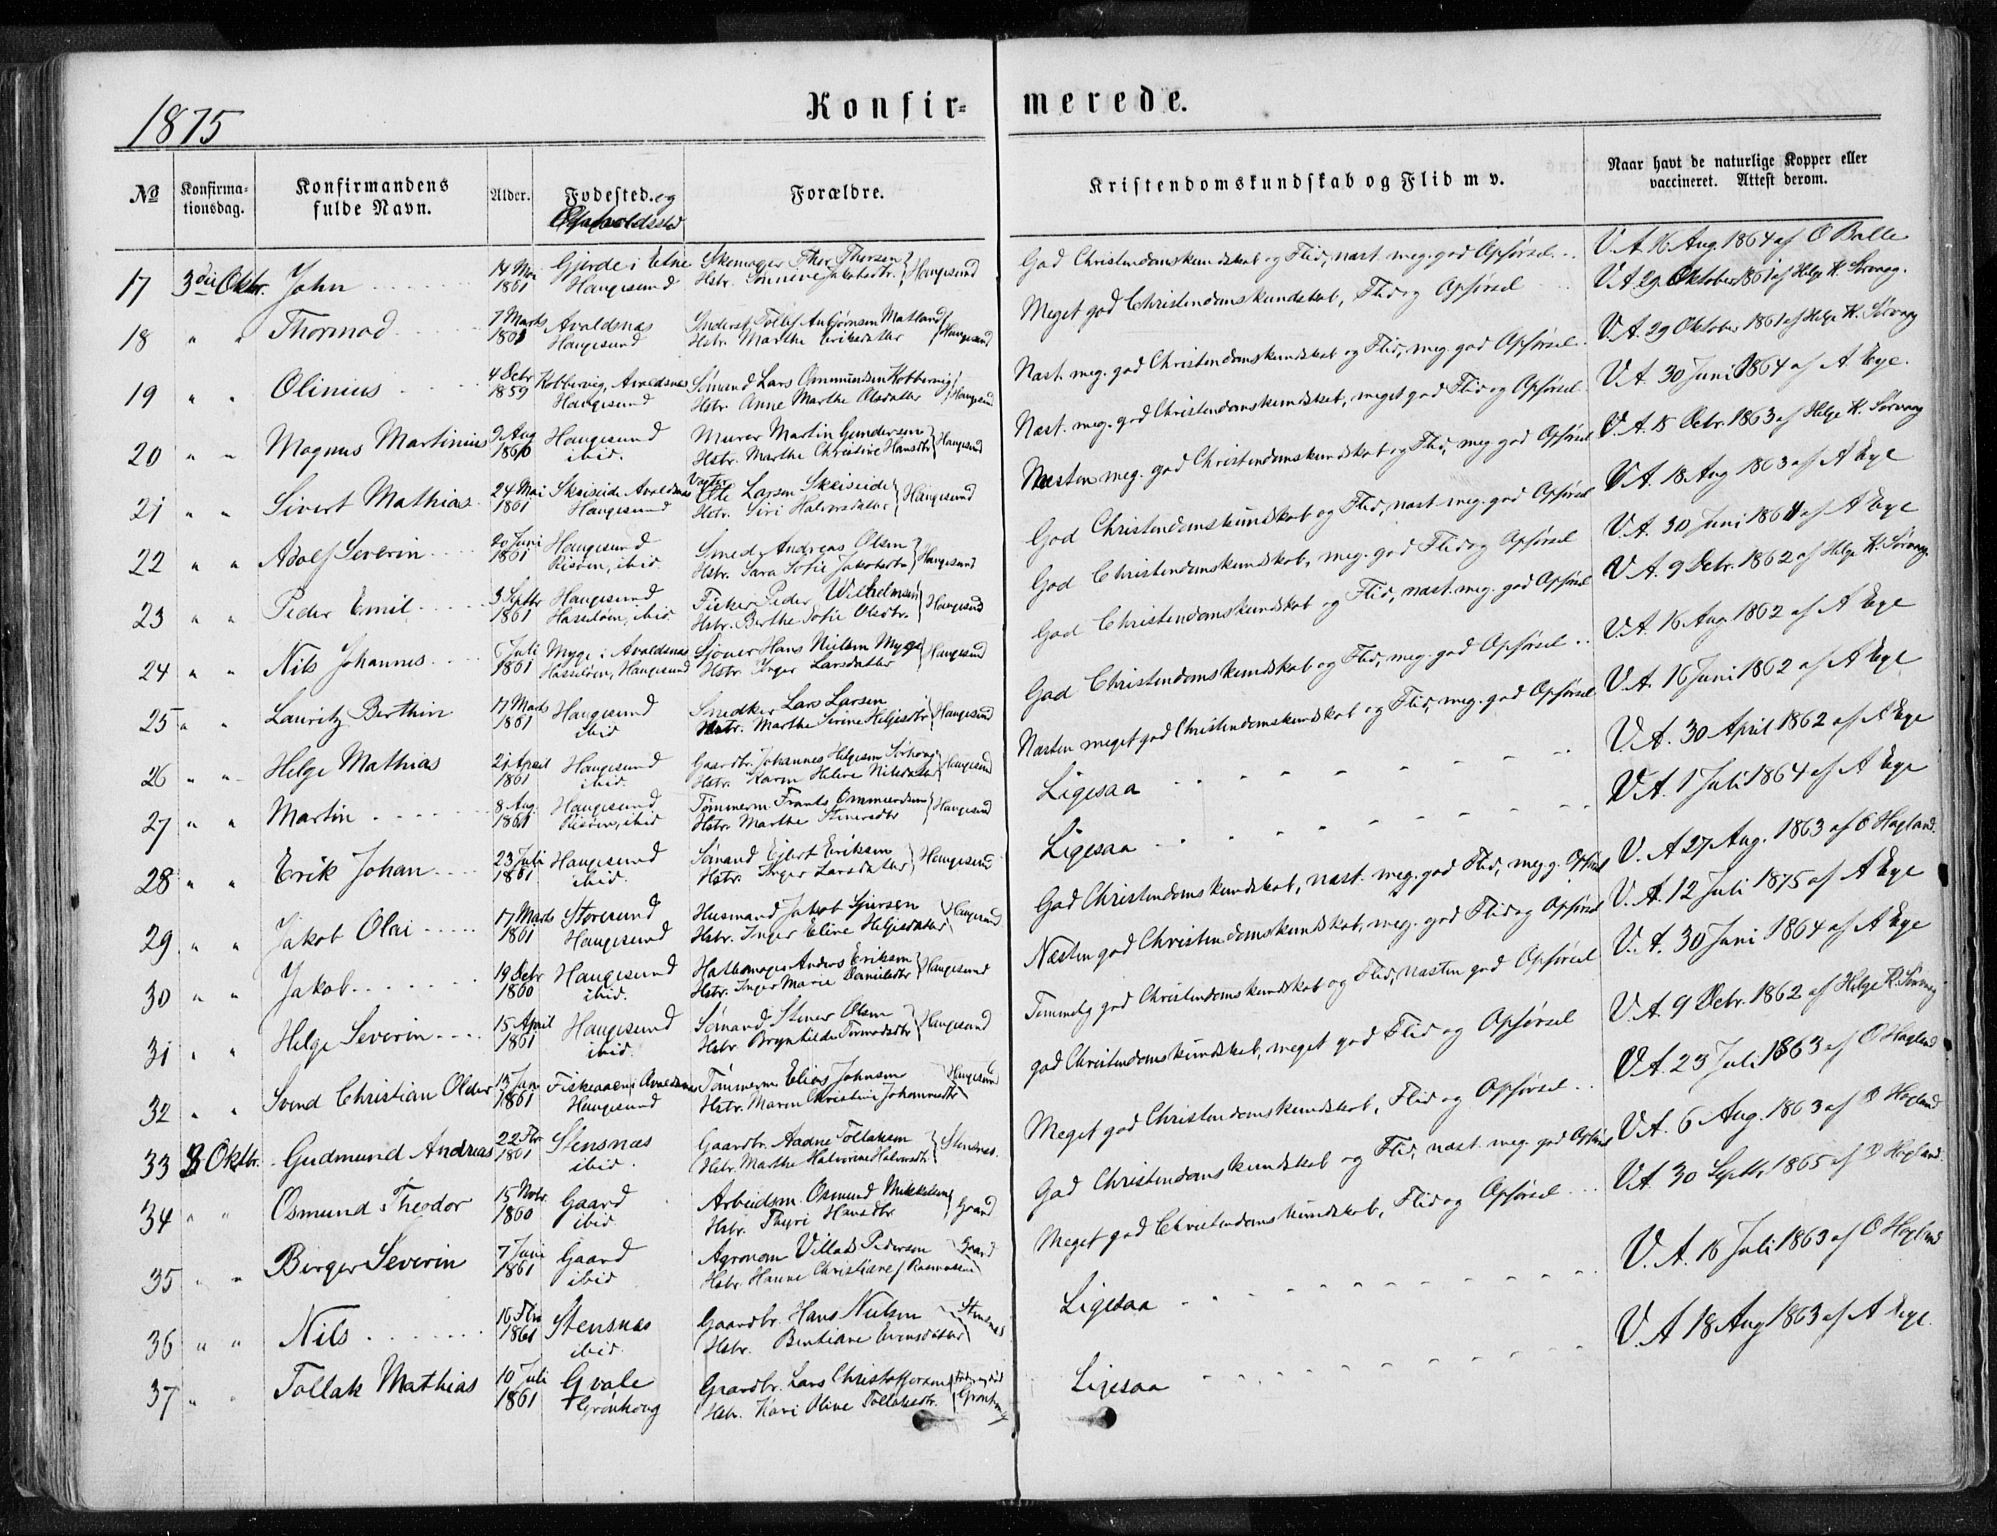 1875
Konfir-merede.
No
Konfirma-tionsdag.
Konfirmandens fulde Navn.
Alder.
Fodested. og Opholdssted
Forældre.
Kristendomskundskab og Flid m v.
Naar havt de naturlige Kopper eller vaccineret. Attest derom.
17 3die Oktbr. John 14 Mai Gjerde i Etne Skomager Thor Thorsen Haugesund God Christendomskundskab og Flid, næst. meg. god Opførsel V. A. 16 Aug. 1864 af O Balle
1861 Haugesund Hstr. Jakobsdtr.
18 " " Thormod 7 Marts Avaldsnæs Inderst Tollef Anbjørnsen Matland Haugesund Meget god Christendomskundskab, Flid og Opførsel V. A 29 Oktober 1861 af Helge K. Sørvaag.
1861 Haugesund Hstr. Marthe Eriksdatter
19 " " Olinius 4 Debr Kobbervig, Avaldsnæs Sømand Lars Ommundsen Kobbervig Haugesund Næst. meg. god Christendomskundskab og Flid, meg. god Opførsel V. A. 29 Oktober 1861 af Helge K. Sørvaag
1859 Haugesund Hstr. Anne Marthe Olsdatter
20 " " Magnus Martinius 9 Aug Haugesund Murer Martin Gundersen Haugesund Næst. meg. god Christendomskundskab, meget god Flid og Opførsel V. A. 30 Juni 1864 af A Eye.
1860 ibid. Hstr. Marthe Christine Hansdtr
21 " " Sivert Mathias 24 Mai Skeiseide Avaldsnæs Ole Larsen Skeiseide Haugesund Næsten meg. god Christendomskundskab og Flid, meg god Opførsel V. A. 15 Debr. 1863 af Helge K. Sørvaag
1861 Haugesund Hstr. Siri Halvorsdatter
22 " " Adolf Severin 20 Juni Haugesund Smed Andreas Olsen Haugesund God Christendomskundskab og Flid, næst meg. god Opførsel V. A. 18 Aug 1863 af A Eye
1861 Risøen, ibid. Hstr. Sara Sofie Jakobsdtr
23 " " Peder Emil 3 Septbr Haugesund Fisker Peder Wilhelmsen Haugesund God Christendomskundskab, meg. god Flid og Opførsel V. A. 30 Juni 1864 af A Eye
1861 Hasseløen, ibid. Hstr. Berthe Sofie Olsdtr.
24 " " Nils Johannes Juli Myge i Avaldsnæs Hans Nielsen Myge Haugesund God Christendomskundskab og Flid, næst. meg. god Opførsel V. A. 9 Debr. 1862 af Helge K. Sørvaag.
1861 Hasseløen, Haugesund Hstr. Inger Larsdatter
25 " " Lauritz Berthin 17 Marts Haugesund Snedker Lars Larsen Haugesund God Christendomskundskab og Flid, meg. god Opførsel V. A. 16 Aug 1862 af A Eye
1861 ibid Hstr. Marthe Serine Helgesdtr
26 " " Helge Mathias 21 April Haugesund Gaardbr. Johannes Helgesen Haugesund Næsten meget god Christendomskundskab og Flid, meg. god Opførsel V. A. 16 Juni 1862 af A Eye
1861 ibid. Hstr. Karen Helene Nilsdatter
27 " " Martin 8 Aug. Haugesund Tømmerm. Frants Ommundsen Haugesund Ligesaa V. A. 30 April 1862 af A Eye
1861 Risøen, ibid Hstr. Marthe
28 " " Erik Johan 23 Juli Haugesund Sømand Ejlert Eriksen Haugesund Ligesaa V. A. 1 Juli 1864 af A Eye
1861 ibid. Hstr. Inger Larsdatter
29 " " Jakob Olai 17 Marts Storesund Husmand Jakob Haugesund God Christendomskundskab, næst. meg. god Flid, meg g. Opførsel V. A 27 Aug. 1863 af O Hagland.
1861 Haugesund Hstr. Inger Eline Helgesdatter
30 " " Jakob 19 Debr Haugesund Hattemager Anders Eriksen Haugesund Næsten god Christendomskundskab, meg. god Flid og Opførsel V. A. 12 Juli 1875 af A Eye
1860 ibid. Hstr. Inger Marie Danielsdtr
31 " " Helge Severin 15 April Haugesund Sømand Steiner Olsen Haugesund Temmelig god Christendomskundskab og Flid, næsten god Opførsel V. A. 30 Juni 1864 af A Eye
1861 ibid. Hstr. Brynhilde Tormodsdtr
32 " " Svend Christian Older 13 Jan Fiskeaaen i Avaldsnæs Tømmerm Elias Johnsen Haugesund god Christendomskundskab, meget god Flid og Opførsel V. A. 9 Debr. 1862 af Helge K. Sørvaag
1861 Haugesund Hstr. Maren Christine Johannesdtr
33 3 Oktbr. Gudmund Andreas 22 Fbr Stensnæs Gaardbr. Aadne Tollaksen Stensnæs. Meget god Christendomskundskab, Flid og Opførsel V. A. 23 Juli 1863 af O Hagland
1861 ibid. Hstr. Marthe Halvorine Halvorsdtr.
34 " " Osmund Theodor 15 Novbr Gaard Arbeidsm. Osmund Mikkelsen Gaard God Christendomskundskab og Flid, næst. meg. god Opførsel V. A. 6 Aug. 1863 af O Hagland
1860 ibid. Hstr. Thyri Hansdtr.
35 " " Birger Severin 7 Juni Gaard Agronom Villads Pedersen Gaard Meget god Christendomskundskab, Flid og Opførsel V. A. 30 Septbr. 1865 af O Hagland.
1861 ibid Hstr. Hanne Christiane f Rasmussen
36 " " Nils 16 Fbr Stensnæs Gaardbr. Hans Nielsen Stensnæs Ligesaa V. A. 16 Juli 1863 af O Hagland
1861 ibid. Hstr. Bentiane Evensdatter
37 " " Tollak Mathias 10 Juli Gvale Gaardbr. Lars Christoffersen Ligesaa V. A 18 Aug 1863 af A Eye.
1861 Grønhoug Hstr. Kari Oline Tollaksdtr. Grønhoug